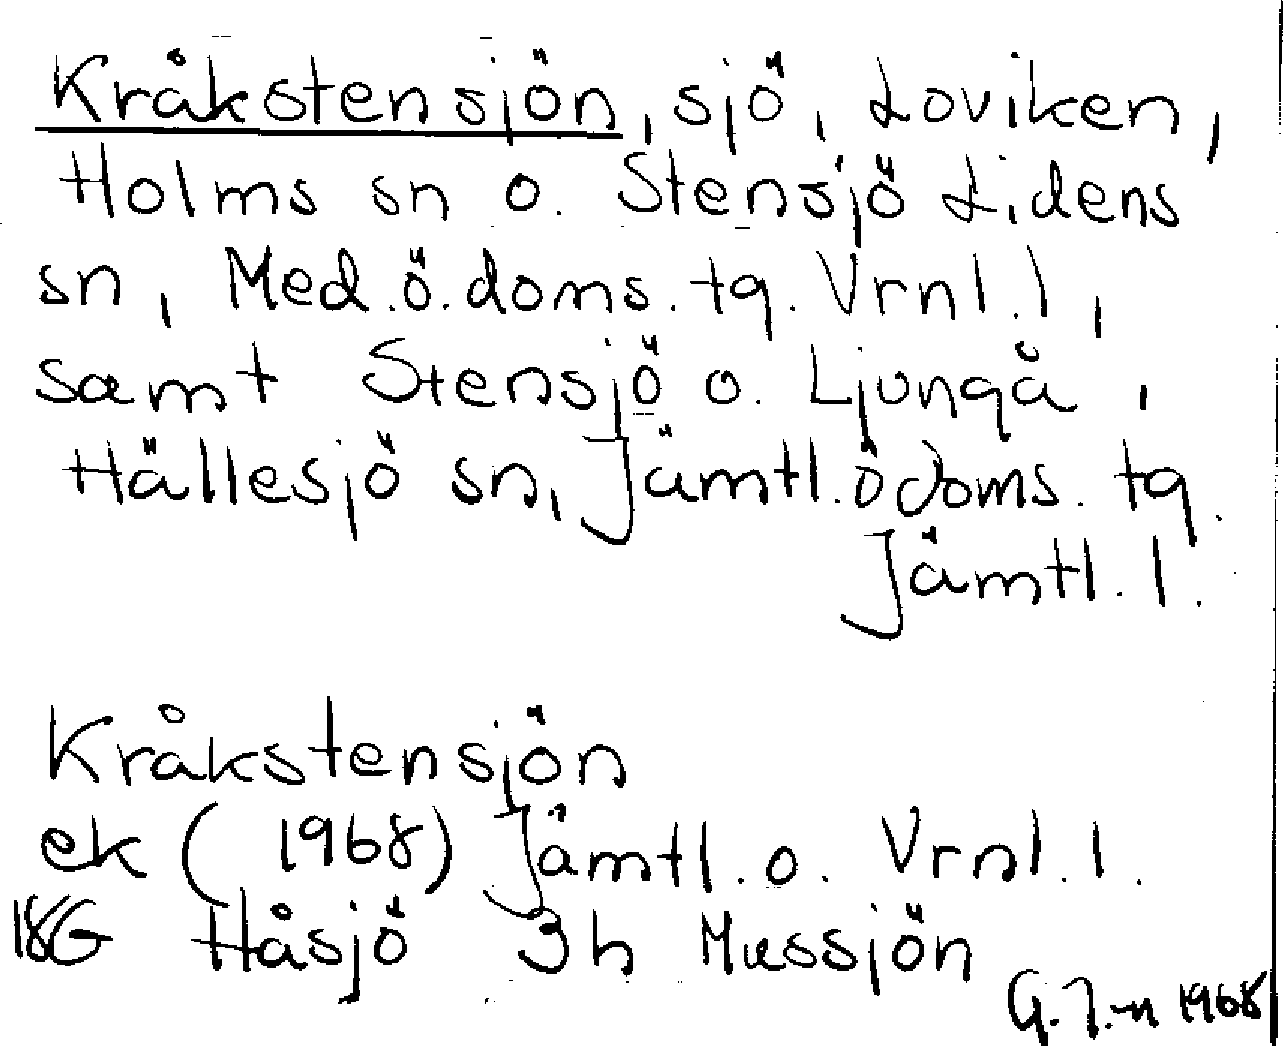 Kråkstensjön, sjö, Loviken,
Holms sn o. Stensjö Lidens
sn, Med.ö.doms.tg. Vrnl.l,
samt Stensjö o. Ljungå,
Hällesjö sn, Jämtl.ödoms.tg.
Jämtl.l.
Kråkstensjön
ek (1968) Jämtl.o. Vrnl.l.
18G Håsjö 3h Mussjön
G.J-n 1968